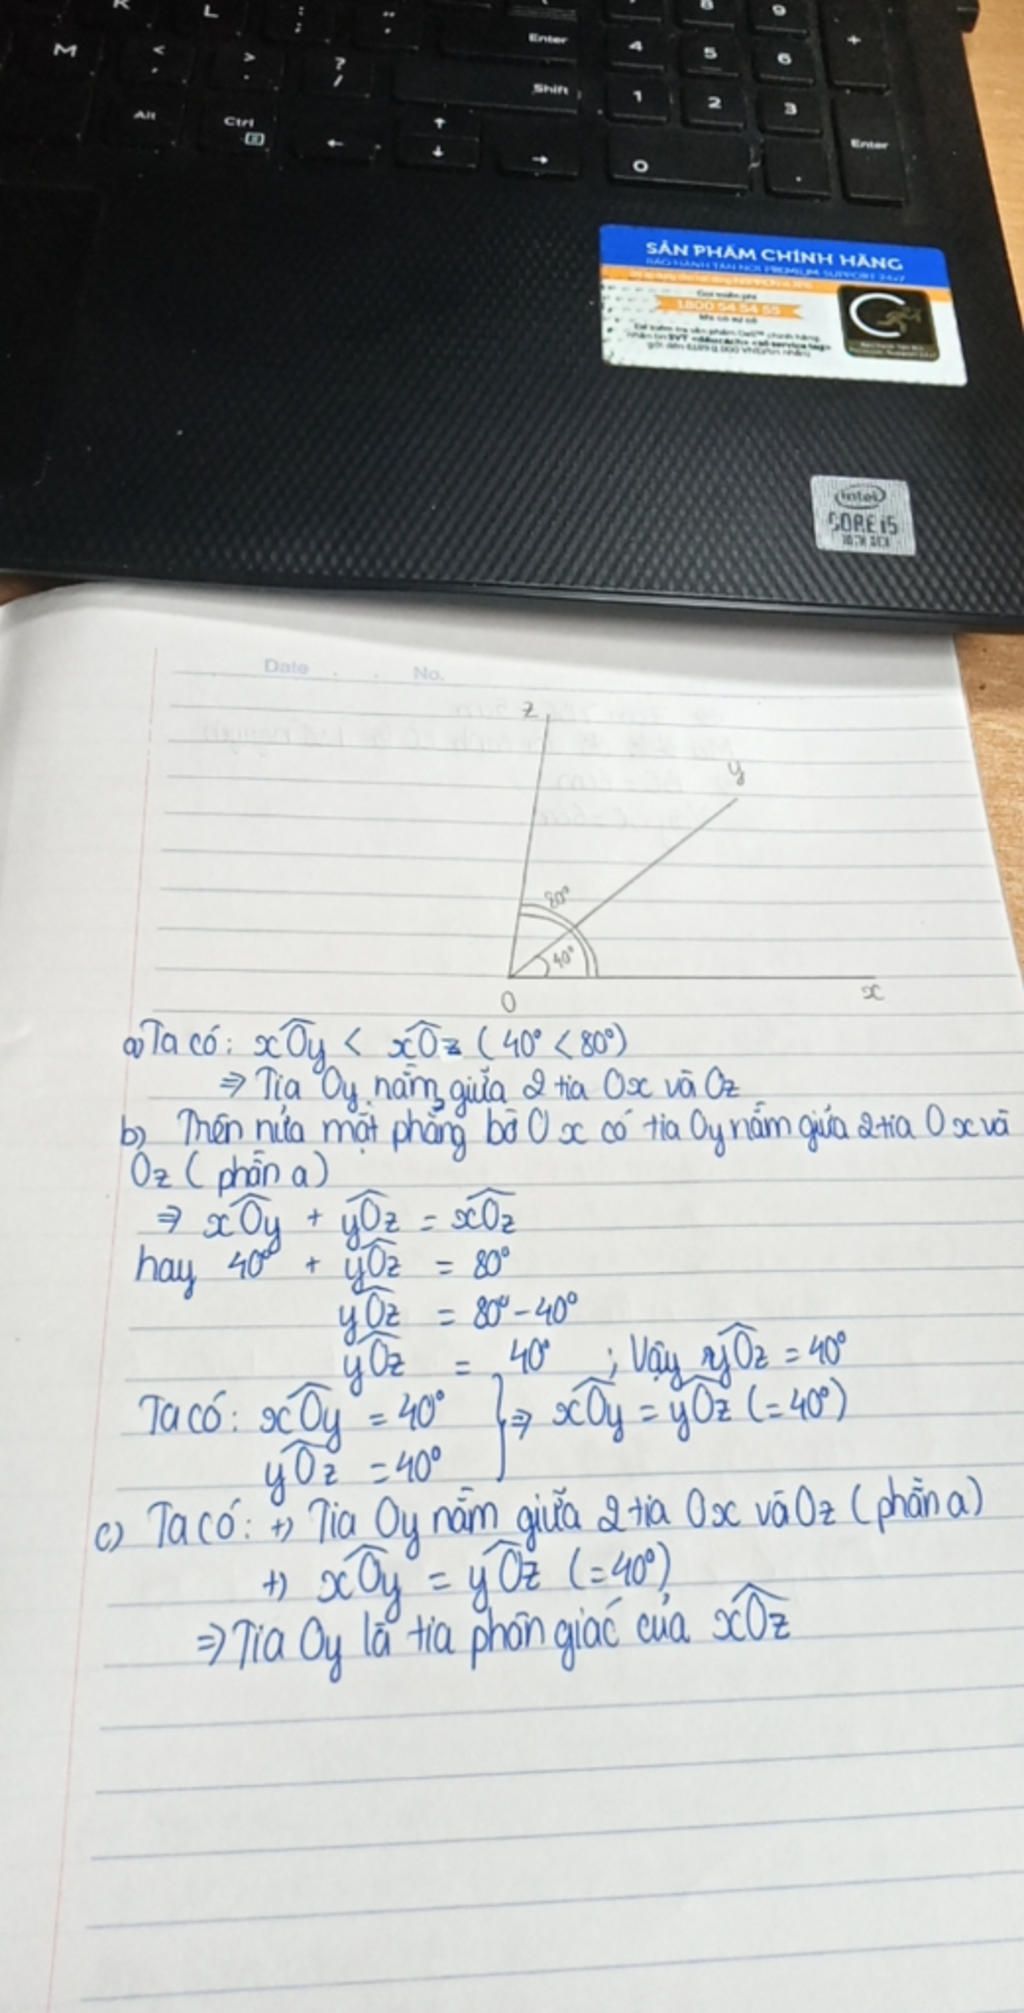 K L : ; " '
M < , > . ? / Enter 4 5 6 +
Alt Ctrl Shift 1 2 3
← ↑ ↓ → 0 . Enter
SẢN PHẨM CHÍNH HÃNG
BẢO HÀNH TẬN NƠI PREMIUM SUPPORT 24x7
1800 54 54 55
intel
CORE i5
Date . . No.
z
y
80°
40°
O x
a) Ta có: xOy < xOz (40° < 80°)
⇒ Tia Oy nằm giữa 2 tia Ox và Oz
b) Trên nửa mặt phẳng bờ Ox có tia Oy nằm giữa 2 tia Ox và
Oz (phần a)
⇒ xOy + yOz = xOz
hay 40° + yOz = 80°
yOz = 80° - 40°
yOz = 40° ; Vậy yOz = 40°
Ta có: xOy = 40° } ⇒ xOy = yOz (= 40°)
yOz = 40°
c) Ta có: +) Tia Oy nằm giữa 2 tia Ox và Oz (phần a)
+) xOy = yOz (= 40°)
⇒ Tia Oy là tia phân giác của xOz